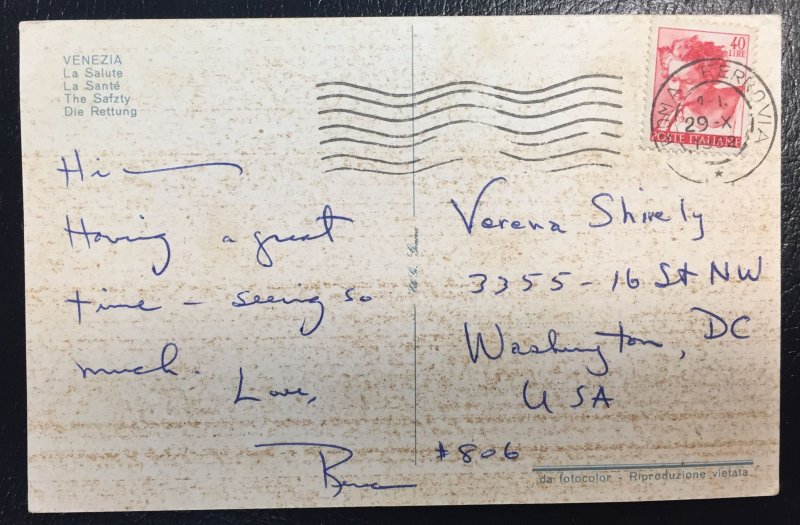 VENEZIA
La Salute
La Santé
The Safzty
Die Rettung
Hi —
Having a great
time – seeing so
much.
Love,
40
LIRE
ROMA FERROVIA
29-X
POSTE ITALIANE
Verena Shirely
3355 - 16 St NW
Washington, DC
USA
#806
da fotocolor - Riproduzione vietata